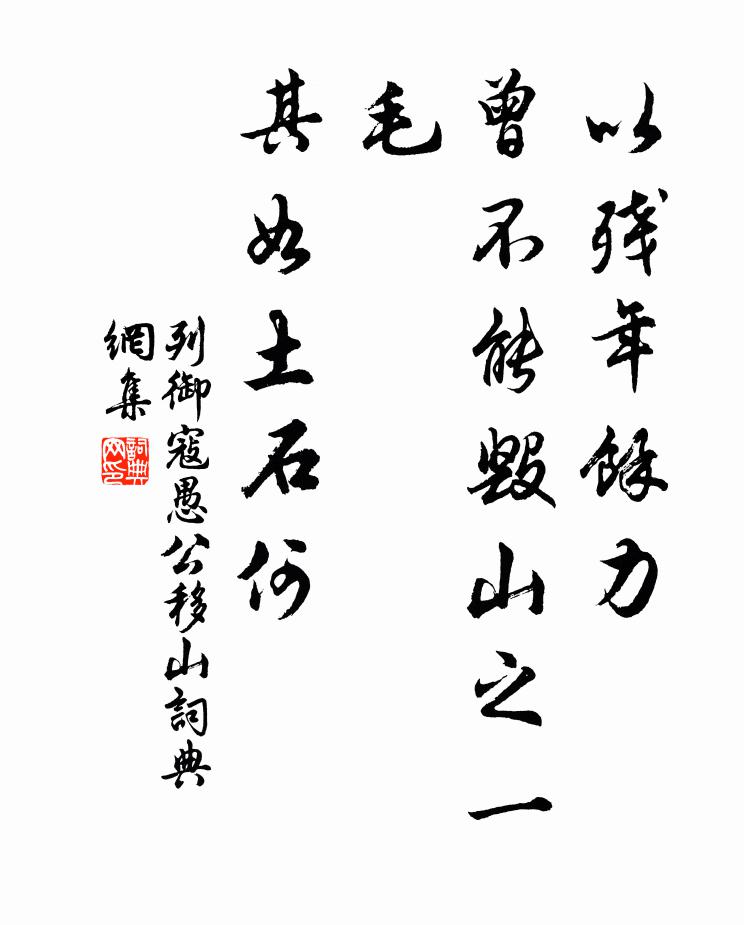 以残年餘力
曾不能毀山之一
毛
其如土石何
列御寇愚公移山詞典
網集
詞典
网印